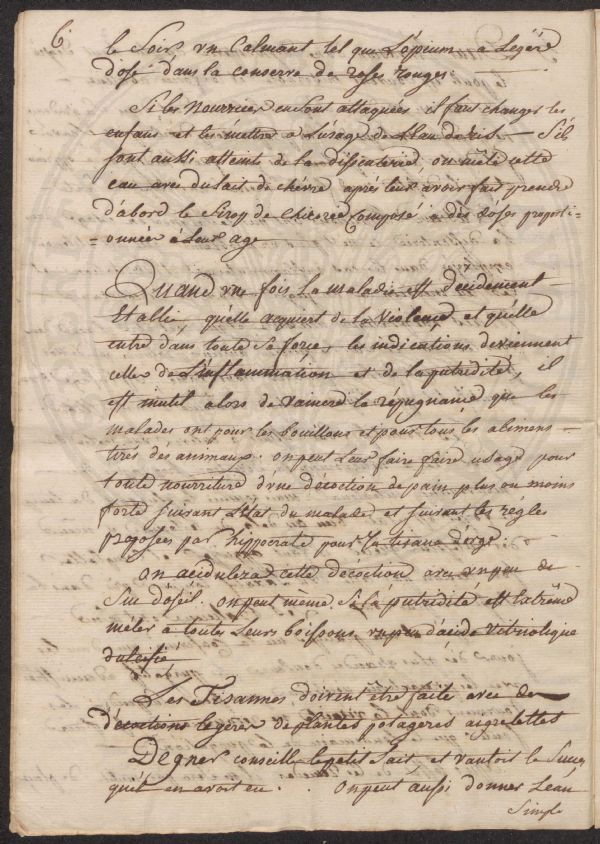 6
le Soir un Calmant tel que L'opium a Legére
dose dans la conserve de roses rouges
Si les Nourrices en sont attaquées il faut changer les
enfans et les mettre a L'usage de L'Eau de ris. S'ils
sont aussi atteints de la dissenterie, on mêle cette
eau avec du lait de chévre après leur avoir fait prendre
d'abord le Sirop de Chicorée Composé, a dès dóses proporti=
=onnées à Leur age
Quand une fois la maladie est decidement
Etablie qu'elle acquiert de la violence et qu'elle
entre dans toute Sa force, les indications deviennent
celles de L'inflammation et de la putridité, il
est inutil alors de vaincre la répugnance que les
malades ont pour les bouillons et pour tous les alimens
tirés dès animaux. on peut Leur faire faire usage pour
toute nourriture d'une décoction de pain plus ou moins
forte suivant L'état du malade et suivant les régles
proposées par hippocrate pour la tisane d'orge.
on acidulera cette décoction avec un peu de
Suc d'oseil. on peut même, Si la putridité est Extrême
méler a toutes Leurs boissons un peu d'acide vitriolique
dulcifié
Les Tisannes doivent etre faite avec de
décoctions legeres de plantes potageres aigrelettes
Degner conseille le petit lait, et vantoit le Succes
qu'il en avoit eu. on peut aussi donner L'eau
Simple